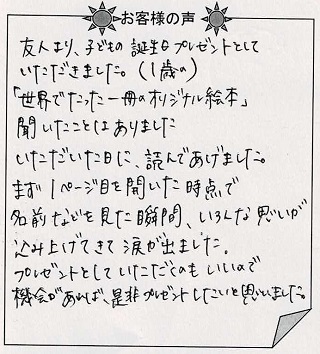 お客様の声
友人より、子どもの誕生日プレゼントとして
いただきました。(1歳の)
「世界でたった一冊のオリジナル絵本」
聞いたことはありました
いただいた日に、読んであげました。
まず1ページ目を開いた時点で
名前などを見た瞬間、いろんな思いが
込み上げてきて涙が出ました。
プレゼントとしていただくのもいいので
機会があれば、是非プレゼントしたいと思いました。